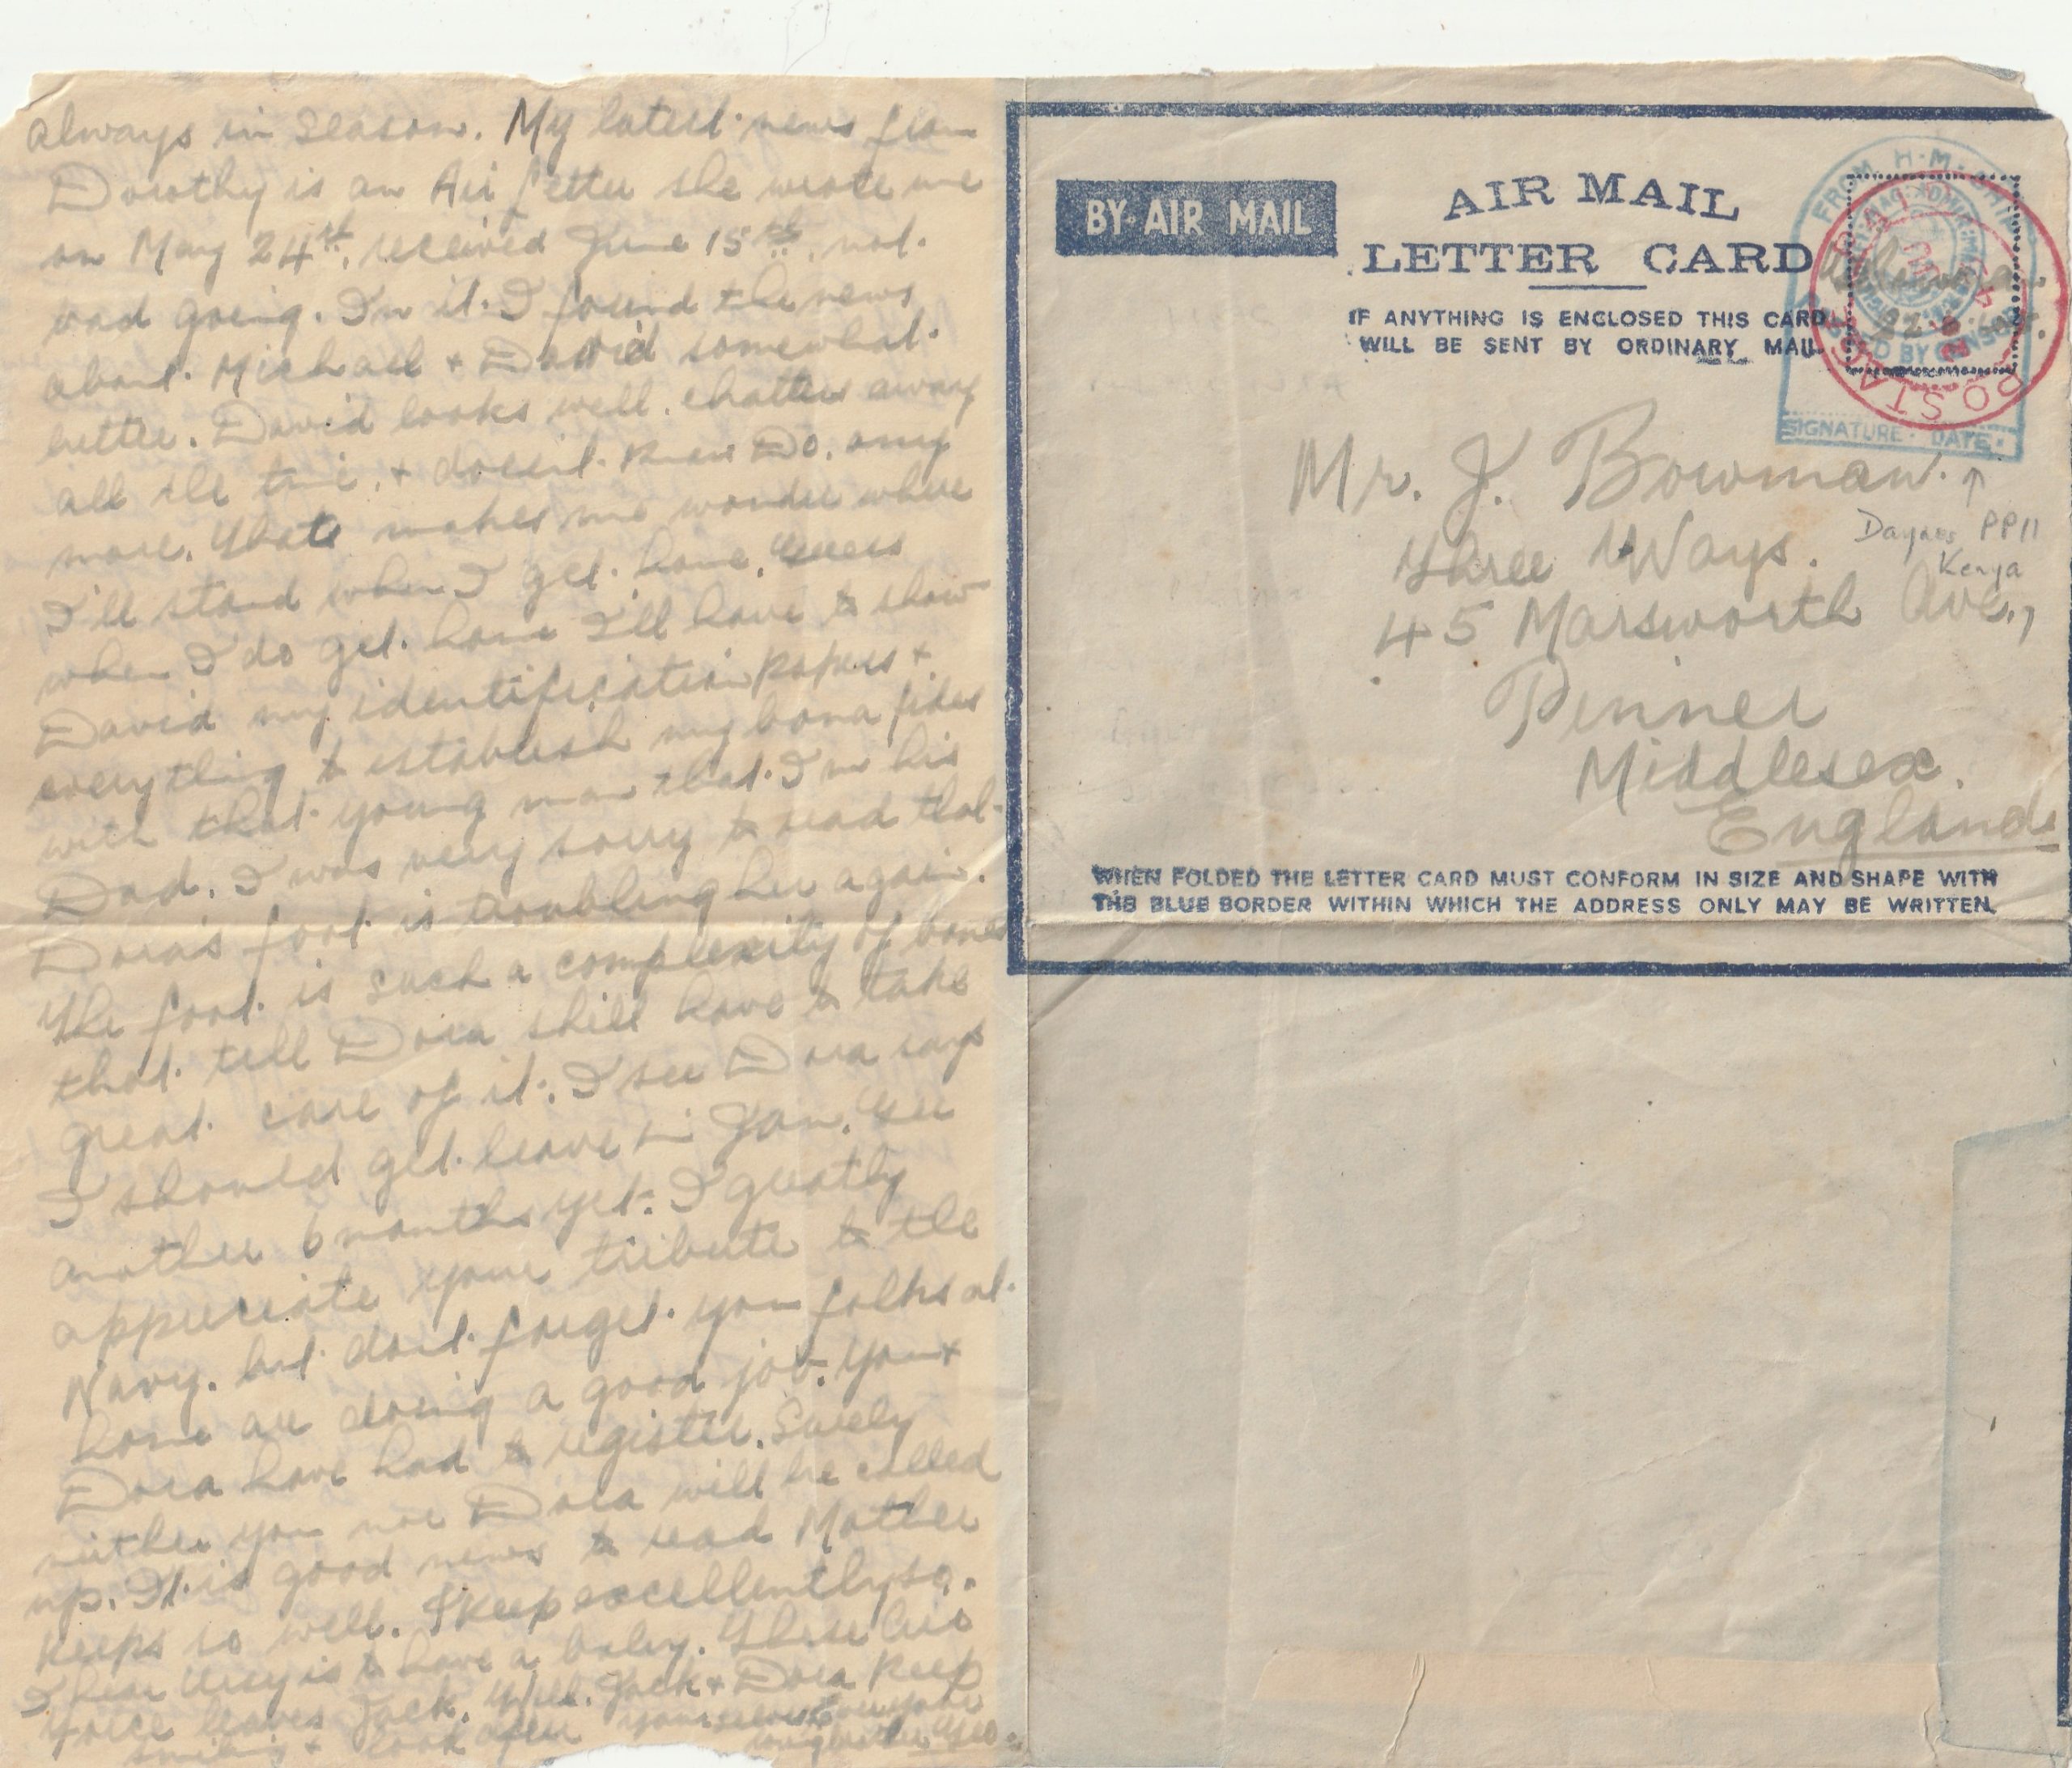 always in season. My latest news from
Dorothy is an Air Letter she wrote me
on May 24th, received June 15th, not
bad going. In it I found the news
about Michael & David somewhat
better. David looks well, chatters away
all the time, & doesn't know Do. any
more. That makes me wonder where
I'll stand when I get home. Guess
when I do get home I'll have to show
David my identification papers &
everything to establish my bona fides
with that young man that I'm his
Dad. I was very sorry to read that
Dora's foot is troubling her again.
The foot is such a complexity of bones
that tell Dora she'll have to take
great care of it. I see Dora says
I should get leave in Jan. Gee
another 6 months yet. I greatly
appreciate your tribute to the
Navy, but don't forget you folks at
home are doing a good job. You &
Dora have had to register. Surely
neither you nor Dora will be called
up. It is good news to read Mother
keeps so well. I keep excellently so.
I hear is to have a baby. These
leaves Jack. Well Jack & Dora keep
smiling & look after yourselves. Ever your
loving brother, Geo.
BY AIR MAIL
AIR MAIL
LETTER CARD
IF ANYTHING IS ENCLOSED THIS CARD
WILL BE SENT BY ORDINARY MAIL.
FROM H.M. SHIP
POSTAGE PAID
22.6
SIGNATURE · DATE
Mr. J. Bowman.
↑
Daynes PP11
Kenya
Three Ways.
45 Marsworth Ave.,
Pinner
Middlesex.
England
WHEN FOLDED THE LETTER CARD MUST CONFORM IN SIZE AND SHAPE WITH
THE BLUE BORDER WITHIN WHICH THE ADDRESS ONLY MAY BE WRITTEN.